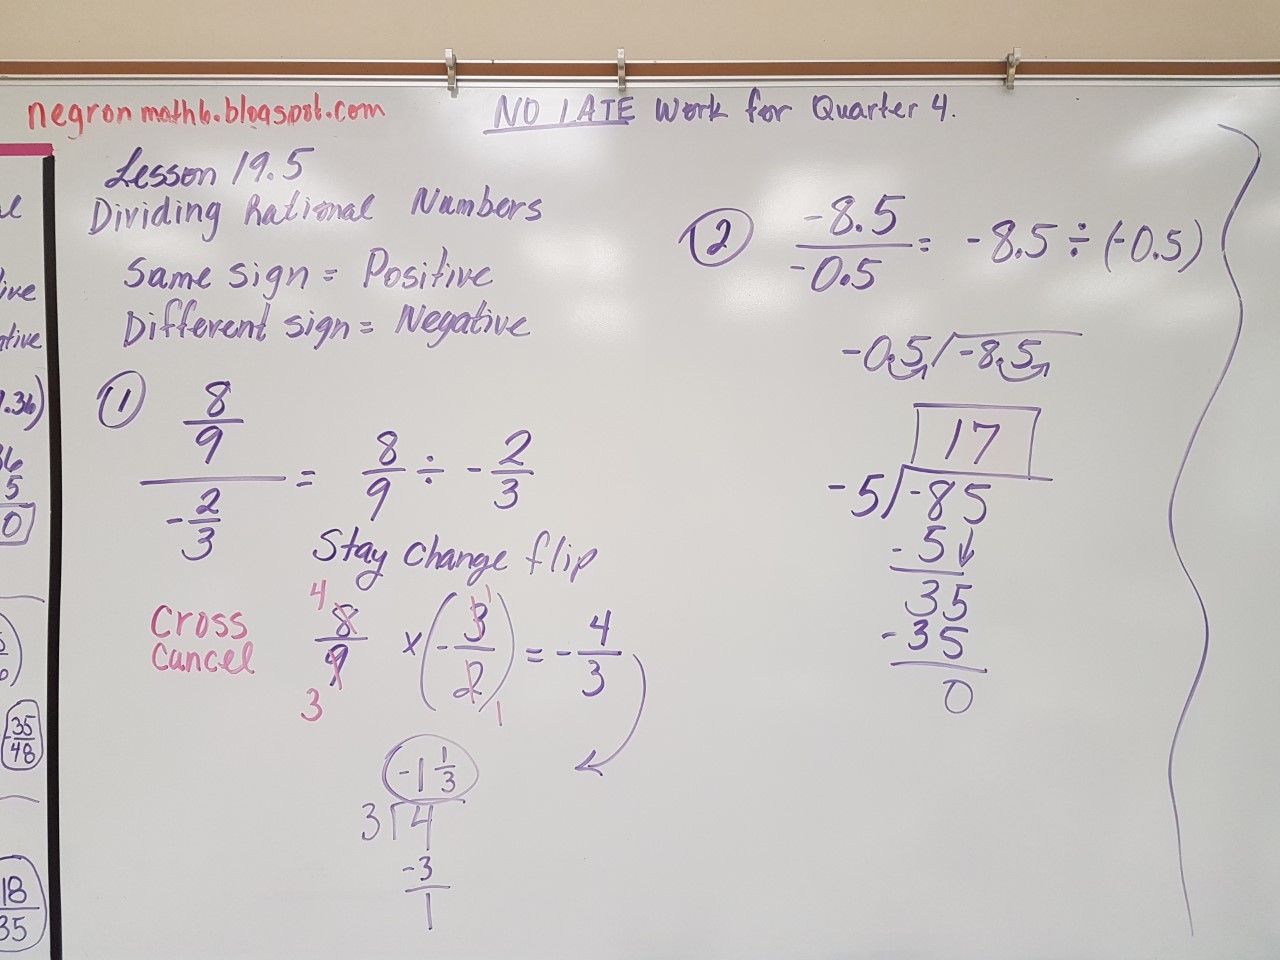 negronmath6.blogspot.com
NO LATE Work for Quarter 4.
Lesson 19.5
Dividing Rational Numbers
Same sign = Positive
Different sign = Negative
① 8/9 / -2/3 = 8/9 ÷ -2/3
Stay change flip
Cross
Cancel
4 8/9 3 × (-3/2) 1 1 = -4/3
-1 1/3
3 4
-3
1
② -8.5/-0.5 = -8.5 ÷ (-0.5)
-0.5 -8.5
17
-5 -85
-5↓
35
-35
0
ive
tive
.36)
5
0
35/48
18/35